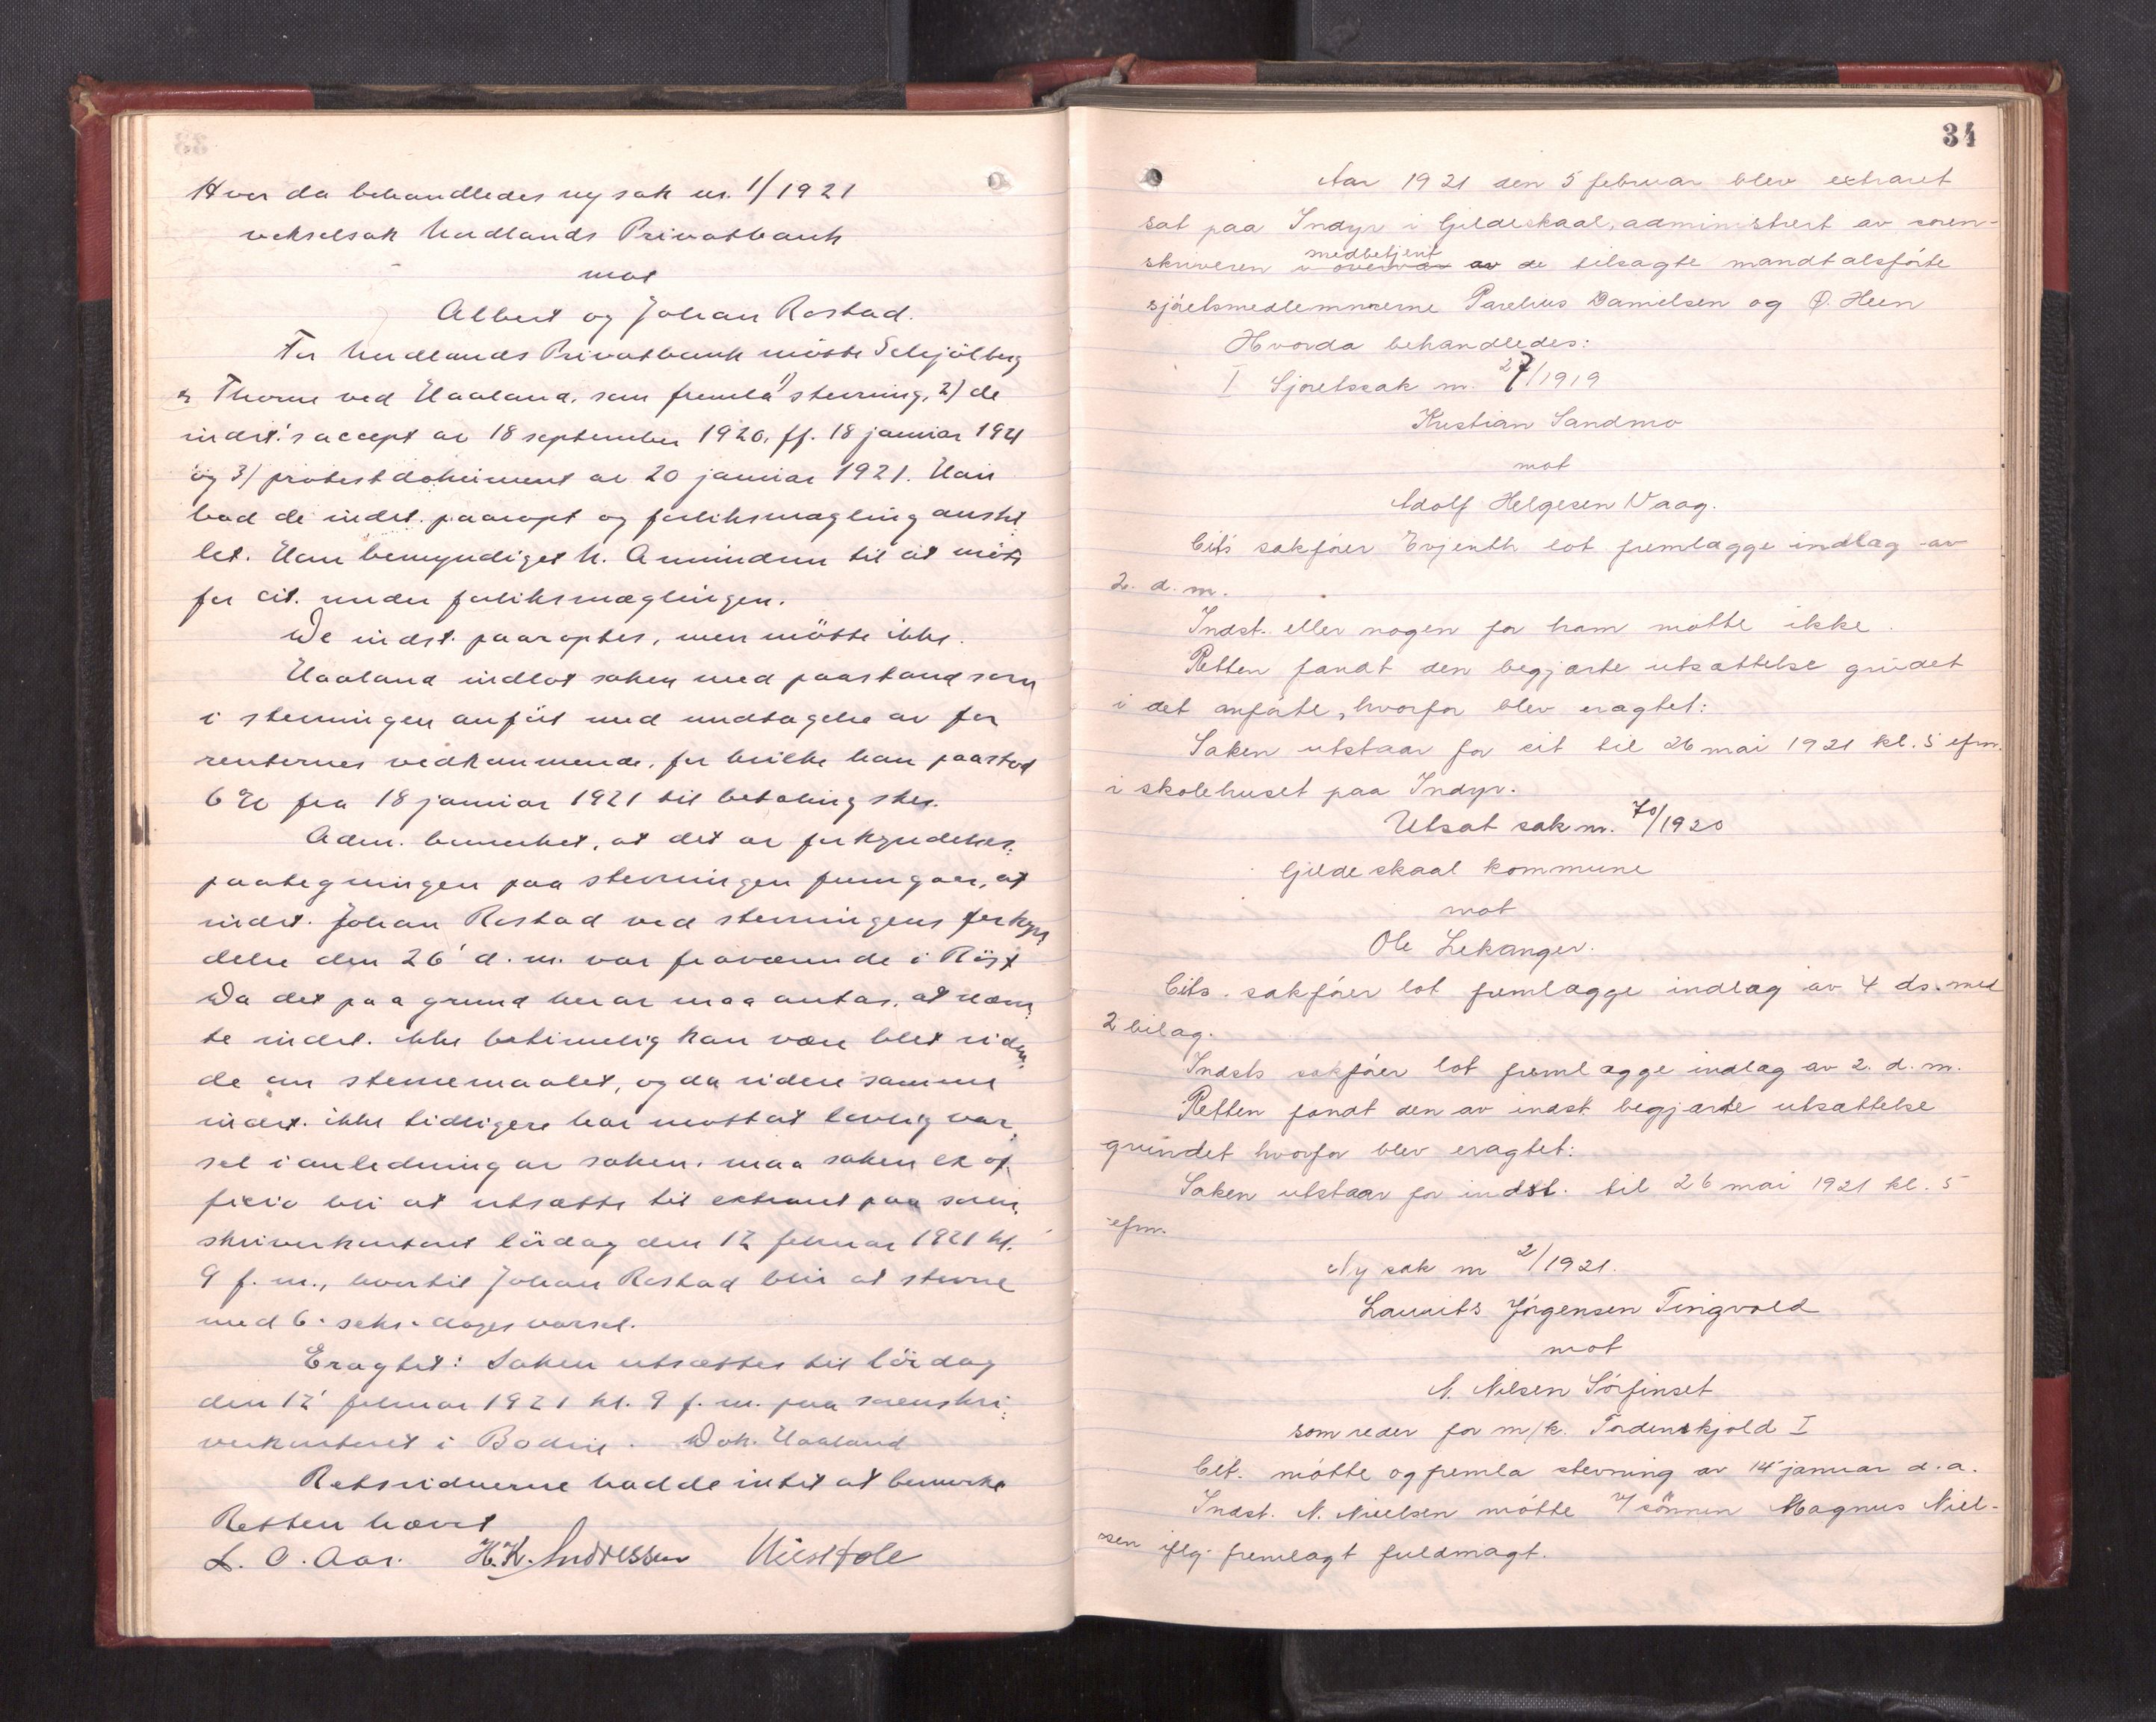 Hvor da behandledes ny sak nr. 1/1921
vekselsak Nordlands Privatbank
mot
Albert og Johan Rostad.
For Nordlands Privatbank mötte Schjölberg
& Thorne ved Haaland, som fremla 1) stevning, 2) de
indst.'s accept av 18 september 1920, ff. 18 januar 1921
og 3) protestdokument av 20 januar 1921. Han
bad de indst. paaropt og forliksmægling anstil
let. Han bemyndiget N. Amundsen til at möte
for cit. under forliksmæglingen.
De indst. paaroptes, men mötte ikke.
Haaland indlot saken med paastand som
i stevningen anfört med undtagelse av for
renternes vedkommende, for hvilke han paastod
6 % fra 18 januar 1921 til betaling sker.
Adm. bemerket, at det av forkyndelses-
paategningen paa stevningen fremgaar, at
indst. Johan Rostad ved stevningens forkyn
delse den 26' d. m. var fraværende i Röst
Da det paa grund herav maa antas, at nævn
te indst. ikke betimelig kan være blet viden
de om stevnemaalet, og da videre samme
indst. ikke tidligere har mottat lovlig var-
sel i anledning av saken, maa saken ex of-
ficio bli at utsætte til extraret paa soren
skriverkontoret lördag den 12 februar 1921 kl.
9 f. m., hvortil Johan Rostad blir at stevne
med 6 - seks - dages varsel.
Eragtet: Saken utsættes til lördag
den 12' februar 1921 kl. 9 f. m. paa sorenskri-
verkontoret i Bodin. Dok. Haaland
Retsvidnerne hadde intet at bemerke
Retten hævet
L. O. Aar. H. K. Andressen
34
Aar 1921 den 5 februar blev extraret
sat paa Indyr i Gildeskaal, administrert av soren-
skriveren medbetjent i overvær av de tilsagte mandtalsförte
sjöretsmedlemmerne Parelius Danielsen og O. Heen
Hvorda behandledes:
I Sjöretssak nr. 27/1919
Kristian Sandmo
mot
Adolf Helgesen Vaag.
Cits sakförer Evjenth lot fremlægge indlæg av
2. d. m.
Indst. eller nogen for ham mötte ikke.
Retten fandt den begjærte utsættelse grundet
i det anförte, hvorfor blev eragtet:
Saken utstaar for cit til 26 mai 1921 kl. 5 efm.
i skolehuset paa Indyr.
Utsat sak nr. 70/1920
Gildeskaal kommune
mot
Ole Lekanger.
Cits. sakförer lot fremlægge indlæg av 4 ds. med
2 bilag.
Indsts sakförer lot fremlægge indlæg av 2. d. m.
Retten fandt den av indst. begjærte utsættelse
grundet hvorfor blev eragtet:
Saken utstaar for indst. til 26 mai 1921 kl. 5
efm.
Ny sak nr 2/1921.
Laurits Jörgensen Tingvold
mot
N. Nilsen Sörfinset
som reder for m/k. Tordenskjold I
Cit. mötte og fremla stevning av 14 januar d. a.
Indst. N. Nielsen mötte v/ sönnen Magnus Niel-
sen iflg. fremlagt fuldmagt.